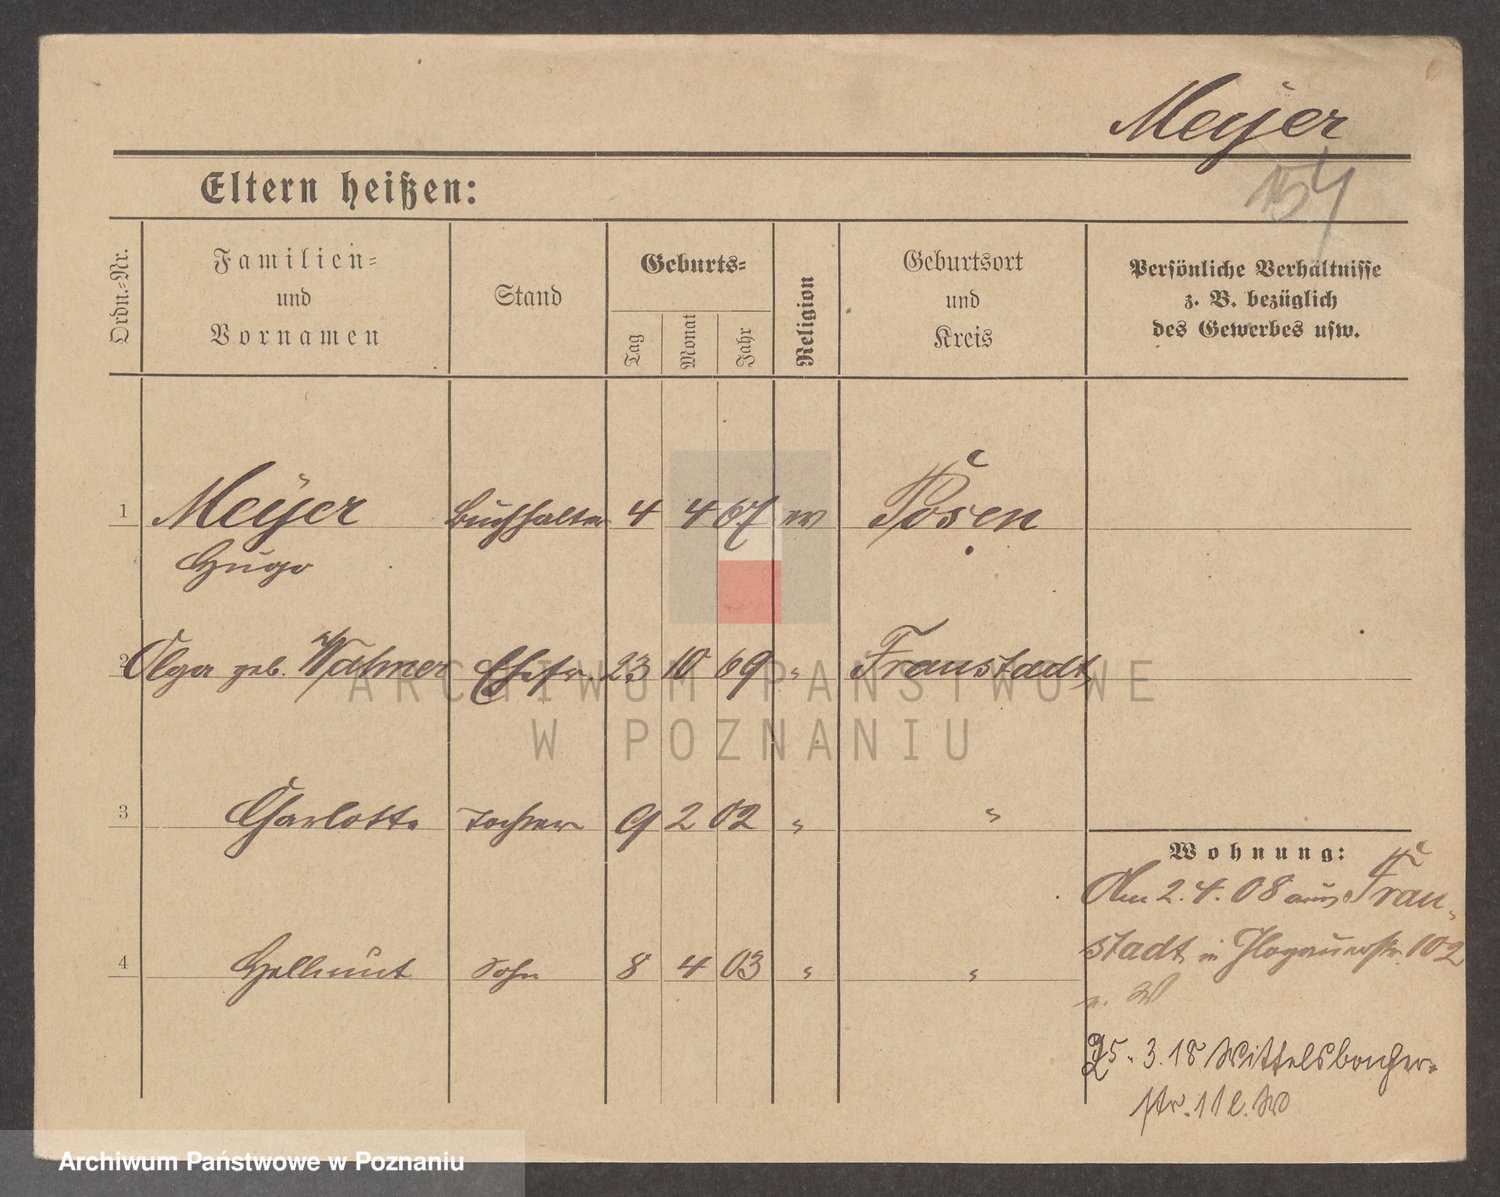 Meyer
154
Eltern heißen:
Ordn.-Nr.
Familien-
und
Vornamen
Stand
Geburts-
Tag
Monat
Jahr
Religion
Geburtsort
und
Kreis
Persönliche Verhältnisse
z. B. bezüglich
des Gewerbes usw.
1 Meyer Buchhalter 4 4 67 ev Posen
Hugo
2 Olga geb. Ehefr. 23 10 69 " Fraustadt
ARCHIWUM PAŃSTWOWE
W POZNANIU
3 Charlotte Tochter 9 2 02 " "
Wohnung:
Am 2.4.08 aus Frau-
4 Hellmut Sohn 8 4 03 " "
stadt in Glogauerstr. 102
v. W
25. 3. 18 Wittelsbacher-
str. 11 b. W
Archiwum Państwowe w Poznaniu